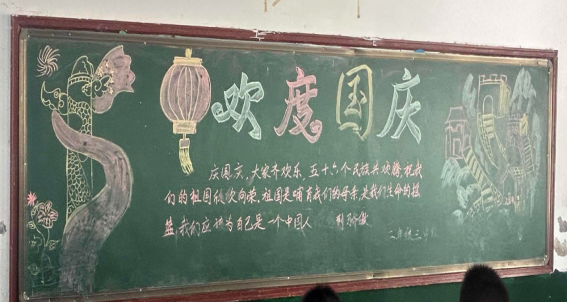 欢度国庆
庆国庆，大家齐欢乐，五十六个民族共欢腾，祝我
们的祖国欣欣向荣，祖国是哺育我们的母亲，是我们生命的摇
篮，我们应该为自己是一个中国人
二年级三班